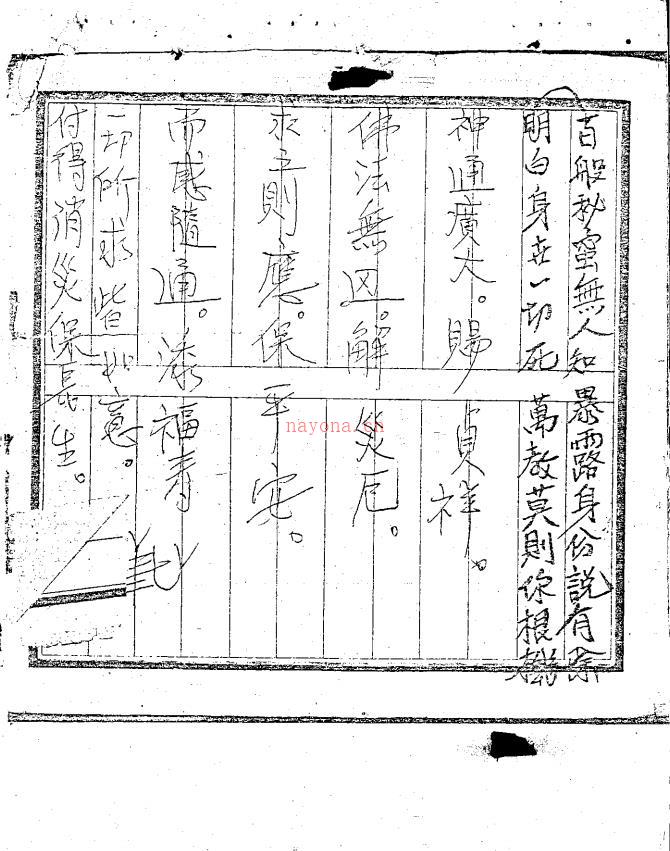 百般秘密無人知暴露身份說有除
明白身在一切死 萬教莫則你根機
神通廣大。賜貞祥。
佛法無边。解災厄。
求之則應。保平安。
而感隨通。添福寿
一切所求皆如意。
付得消災保長生。
nayona.cn